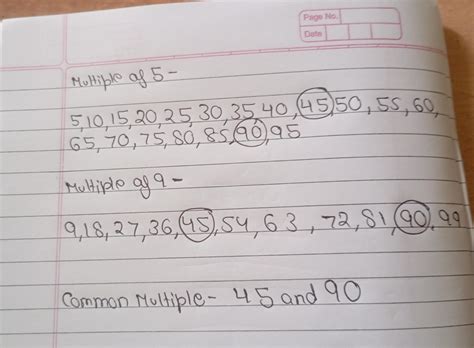 Page No.
Date
Multiple of 5-
5,10,15,20,25,30,35,40,45,50,55,60,
65,70,75,80,85,90,95
Multiple of 9-
9,18,27,36,45,54,63,72,81,90,99
Common Multiple- 45 and 90